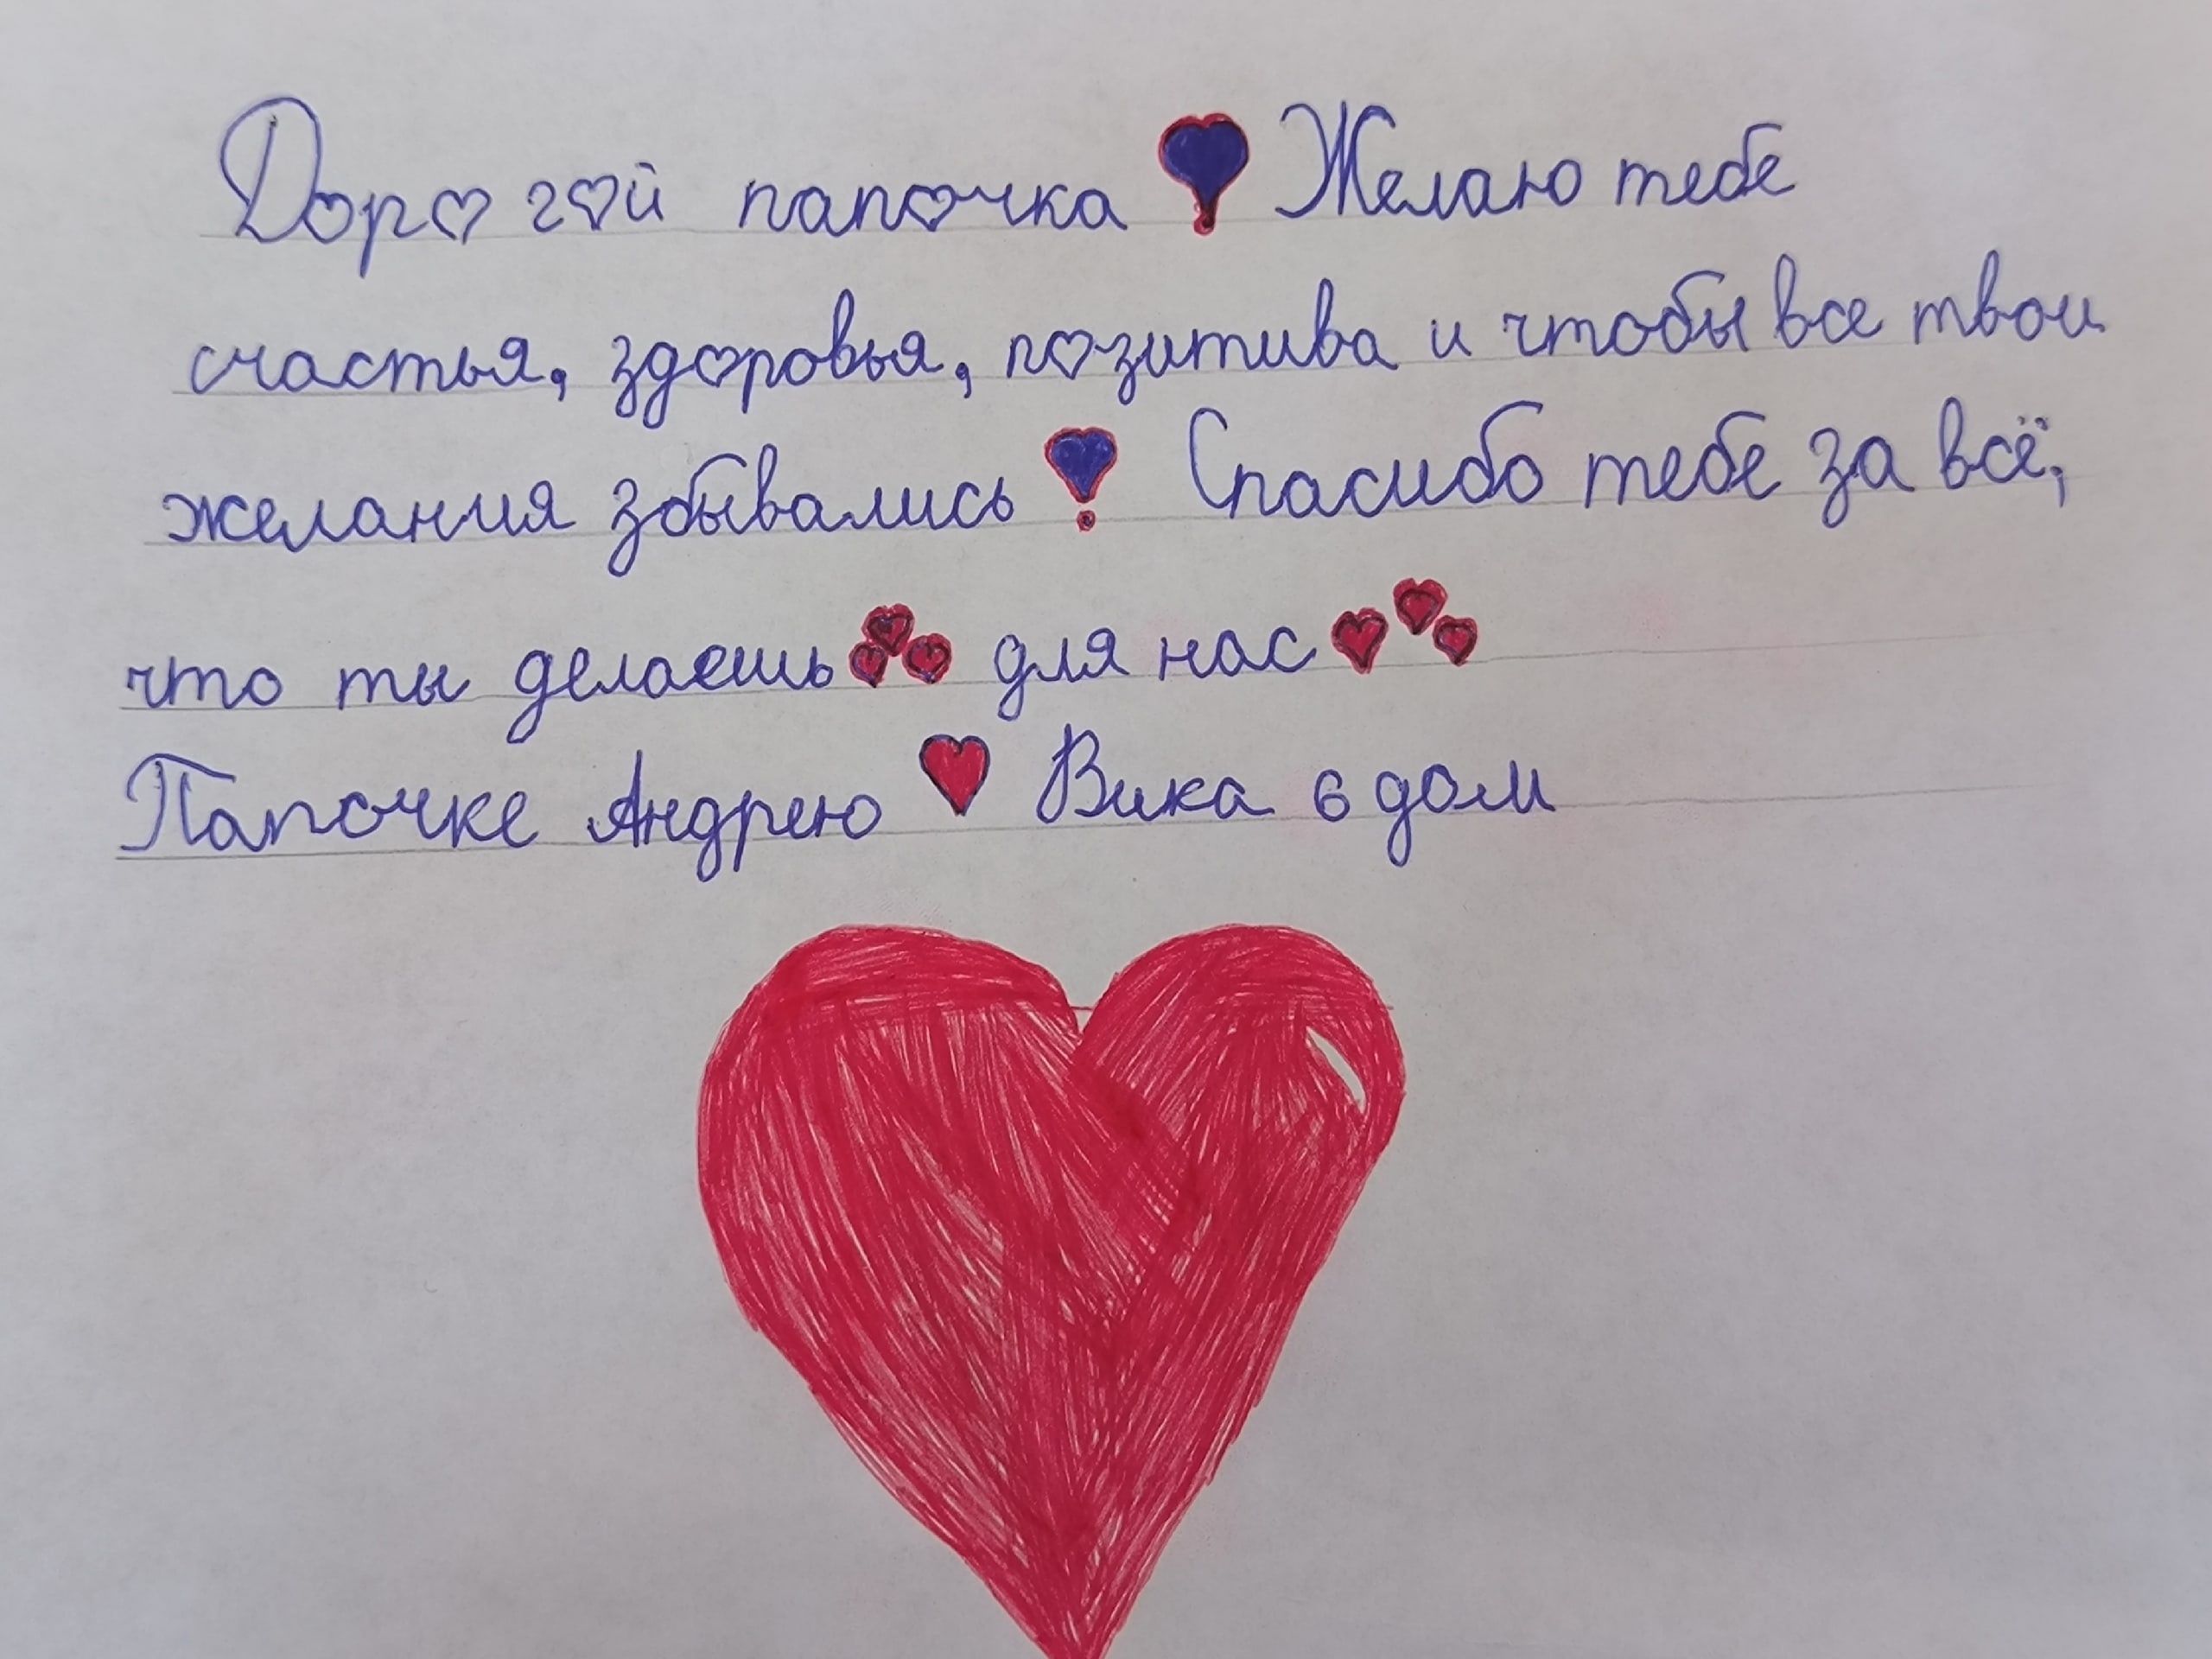 Дорогой папочка! Желаю тебе
счастья, здоровья, позитива и чтобы все твои
желания збывались! Спасибо тебе за всё,
что ты делаешь для нас
Папочке Андрею Вика 6 дом